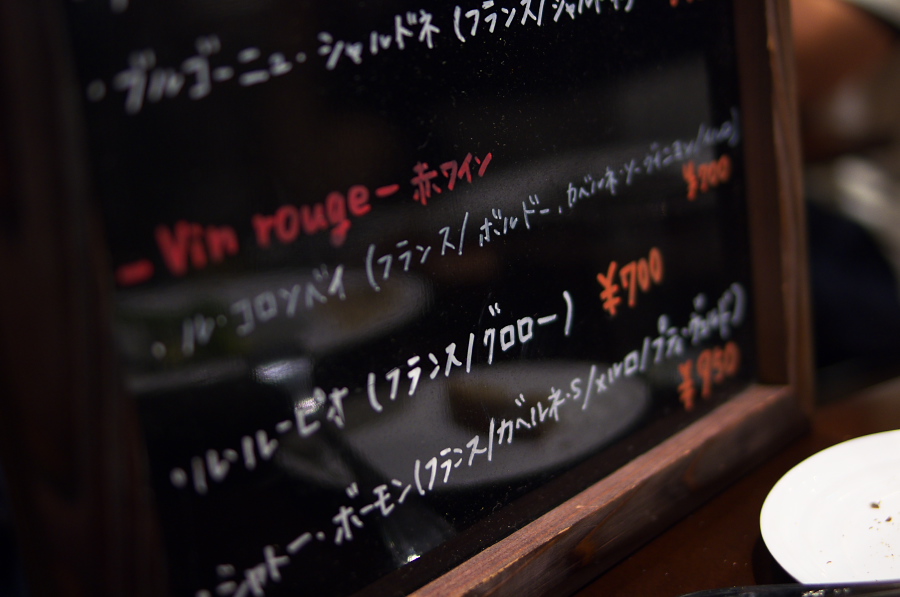 ・ブルゴーニュ・シャルドネ (フランス/シャルドネ)
- Vin rouge - 赤ワイン
・ル・コロンベイ (フランス/ボルドー、カベルネ・ソーヴィニヨン/メルロ)
¥700
・ル・ル・ピオ (フランス/グロロー) ¥700
・シャトー・ボーモン(フランス/カベルネ・S/メルロ/プティ・ヴェルド)
¥950